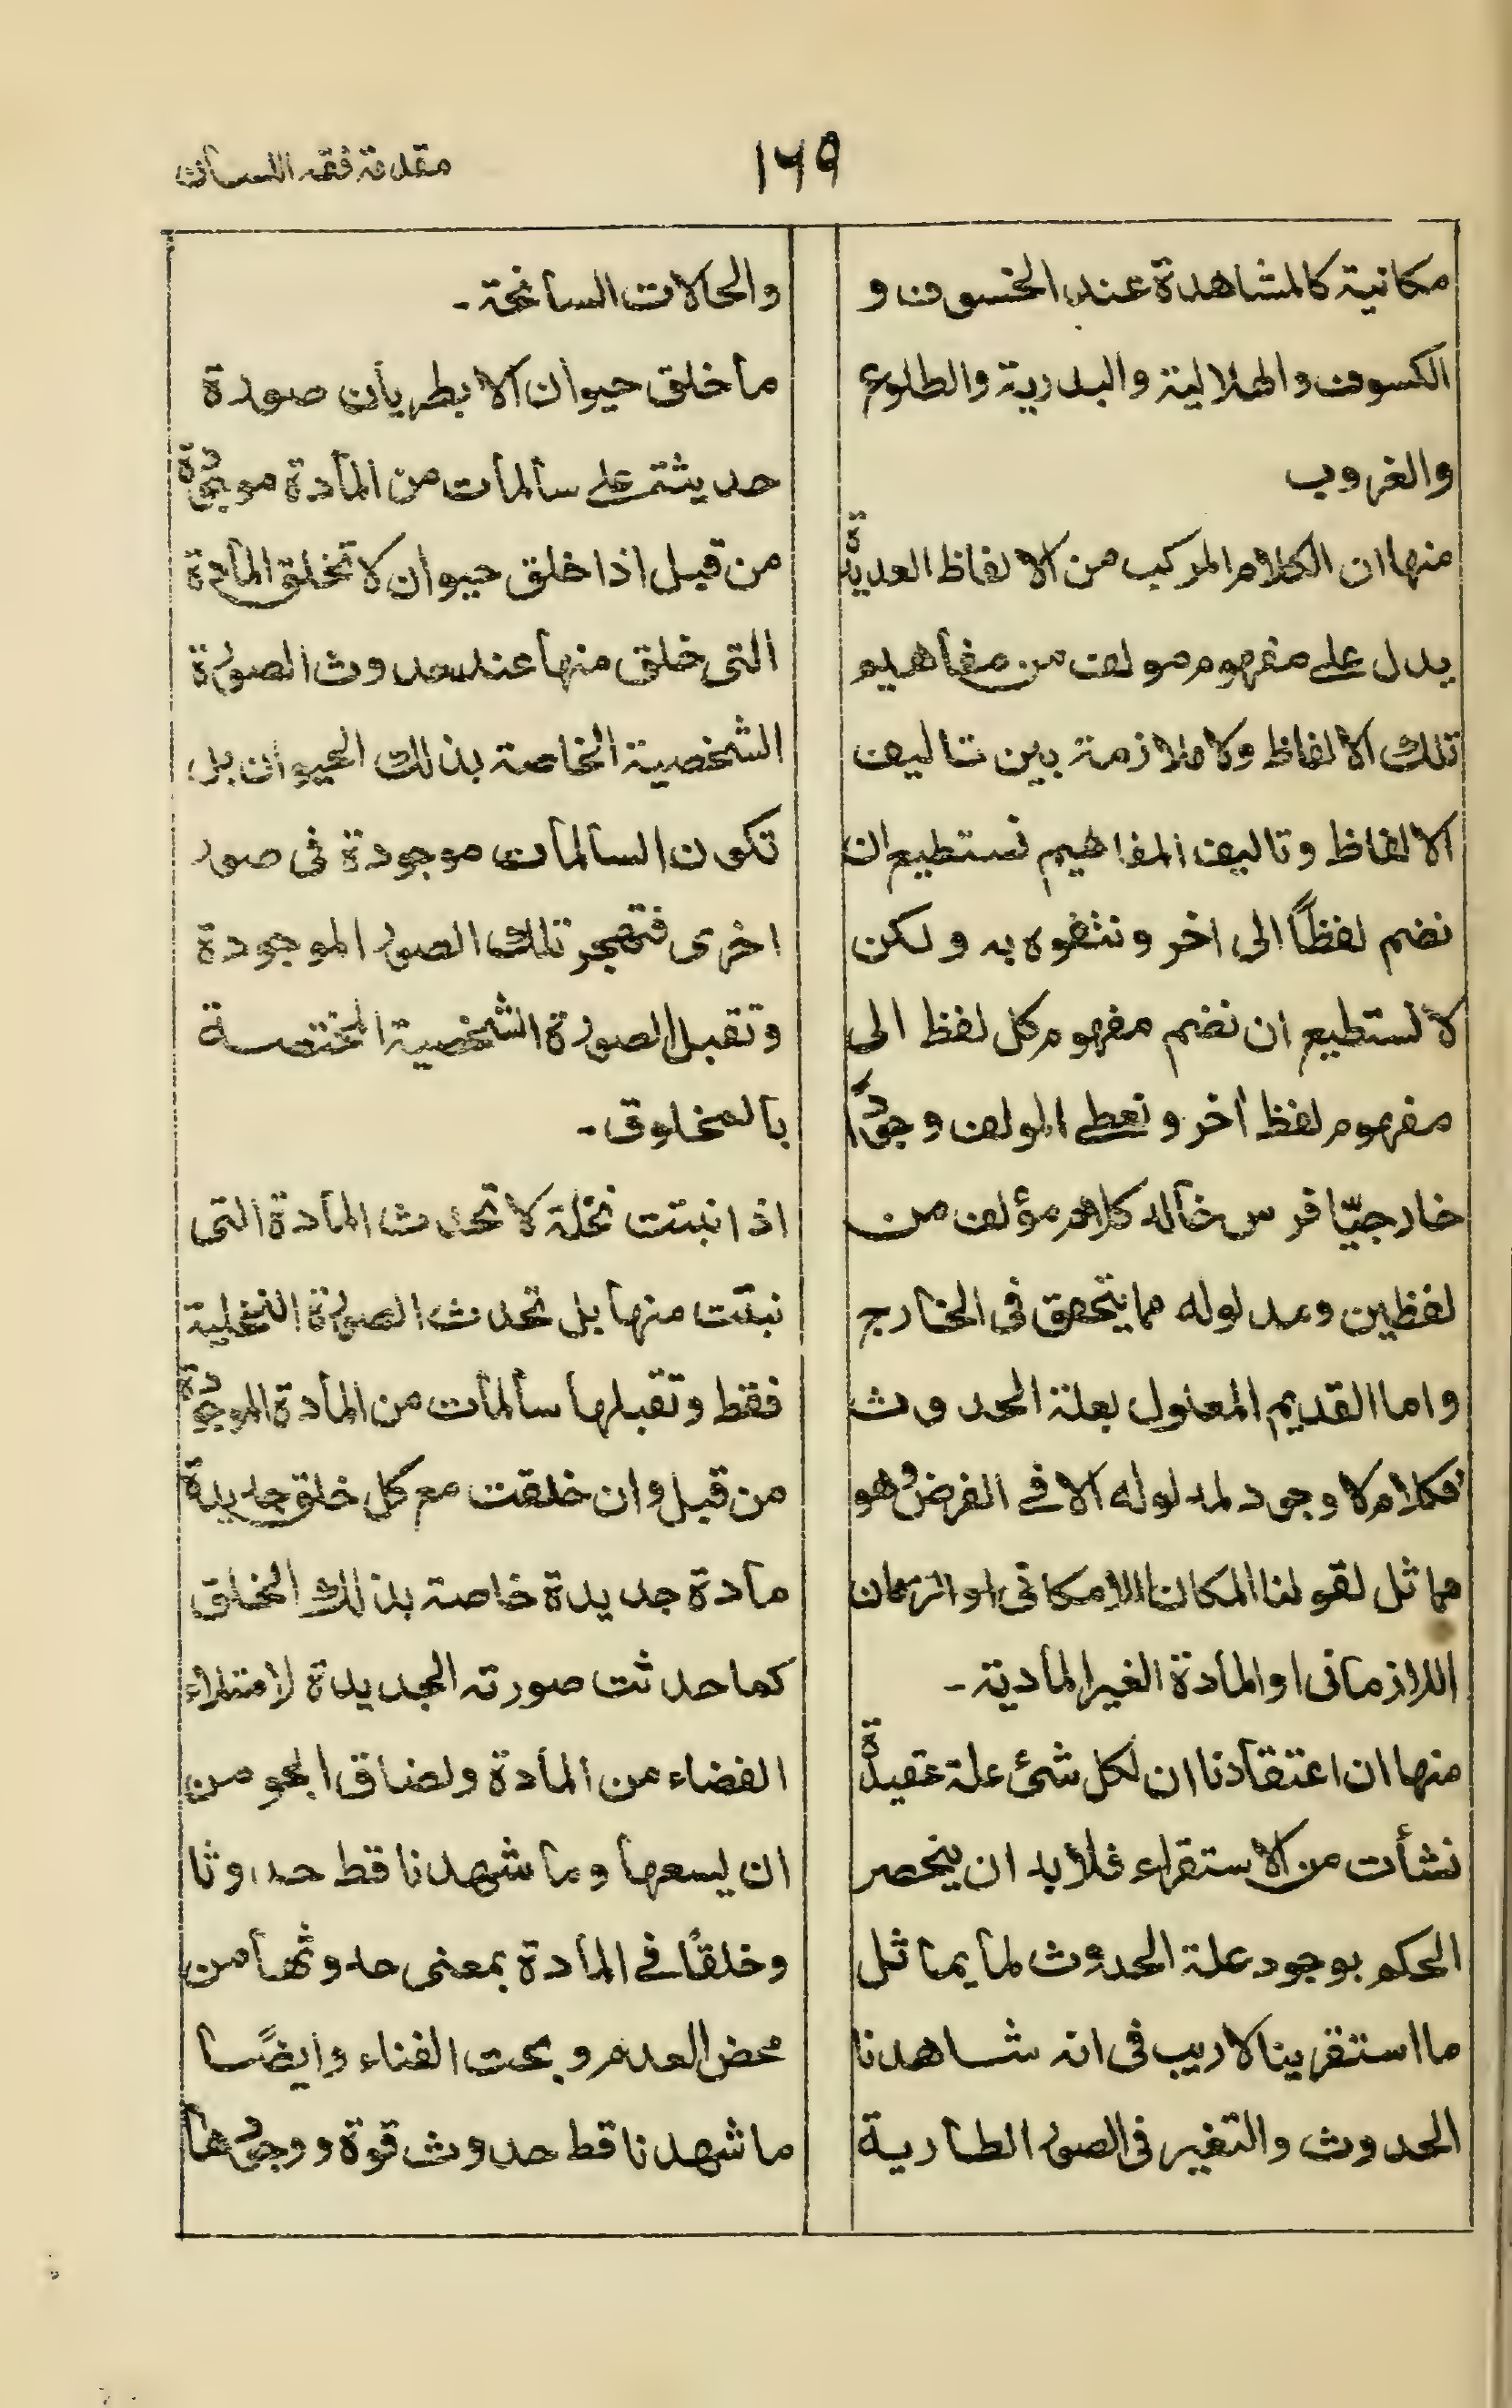 ۱۶۹
مقدمة فقه اللسان
مكانية كالمشاهدة عند الخسوف و
الكسوف والهلالية والبدرية والطلوع
والغروب
منها ان الكلام المركب من الالفاظ العديدة
يدل على مفهوم مولف من مفاهيم
تلك الالفاظ ولا ملازمة بين تاليف
الالفاظ وتاليف المفاهيم نستطيع ان
نضم لفظاً الى اخر ونتفوه به ولكن
لا نستطيع ان نضم مفهوم كل لفظ الى
مفهوم لفظ أخر ونعطى المولف وجوداً
خارجيّا فرس خاله كلام مؤلف من
لفظين ومدلوله مما يتحقق فى الخارج
واما القديم المعلول بعلة الحدوث
فكلام لا وجود لمدلوله الا فى الفرض وهو
مماثل لقولنا المكان اللامكانى او الزمان
اللازمانى او المادة الغير المادية ۔
منها ان اعتقادنا ان لكل شئ علة عقيدة
نشأت من الاستقراء فلا بد ان ينحصر
الحكم بوجود علة الحدوث لما يماثل
ما استقرينا لا ريب فى انه شاهدنا
الحدوث والتغير فى الصور الطارية
والحالات السانحة ۔
ما خلق حيوان الا بطريان صورة
حديثة على سالمات من المادة موجودة
من قبل اذا خلق حيوان لا تخلق المادة
التى خلق منها عند حدوث الصورة
الشخصية الخاصة بذلك الحيوان بل
تكون السالمات موجودة فى صور
اخرى فتهجر تلك الصور الموجودة
وتقبل الصورة الشخصية المختصة
بالمخلوق ۔
اذا نبتت نخلة لا تحدث المادة التى
نبتت منها بل تحدث الصورة النخلية
فقط وتقبلها سالمات من المادة الموجودة
من قبل وان خلقت مع كل خلق جديد
مادة جديدة خاصة بذلك الخلق
كما حدثت صورته الجديدة لامتلاء
الفضاء من المادة ولضاق الجو من
ان يسعها وما شهدنا قط حدوثا
وخلقًا فى المادة بمعنى حدوثها من
محض العدم و بحت الفناء وايضًا
ما شهدنا قط حدوث قوة ووجودها